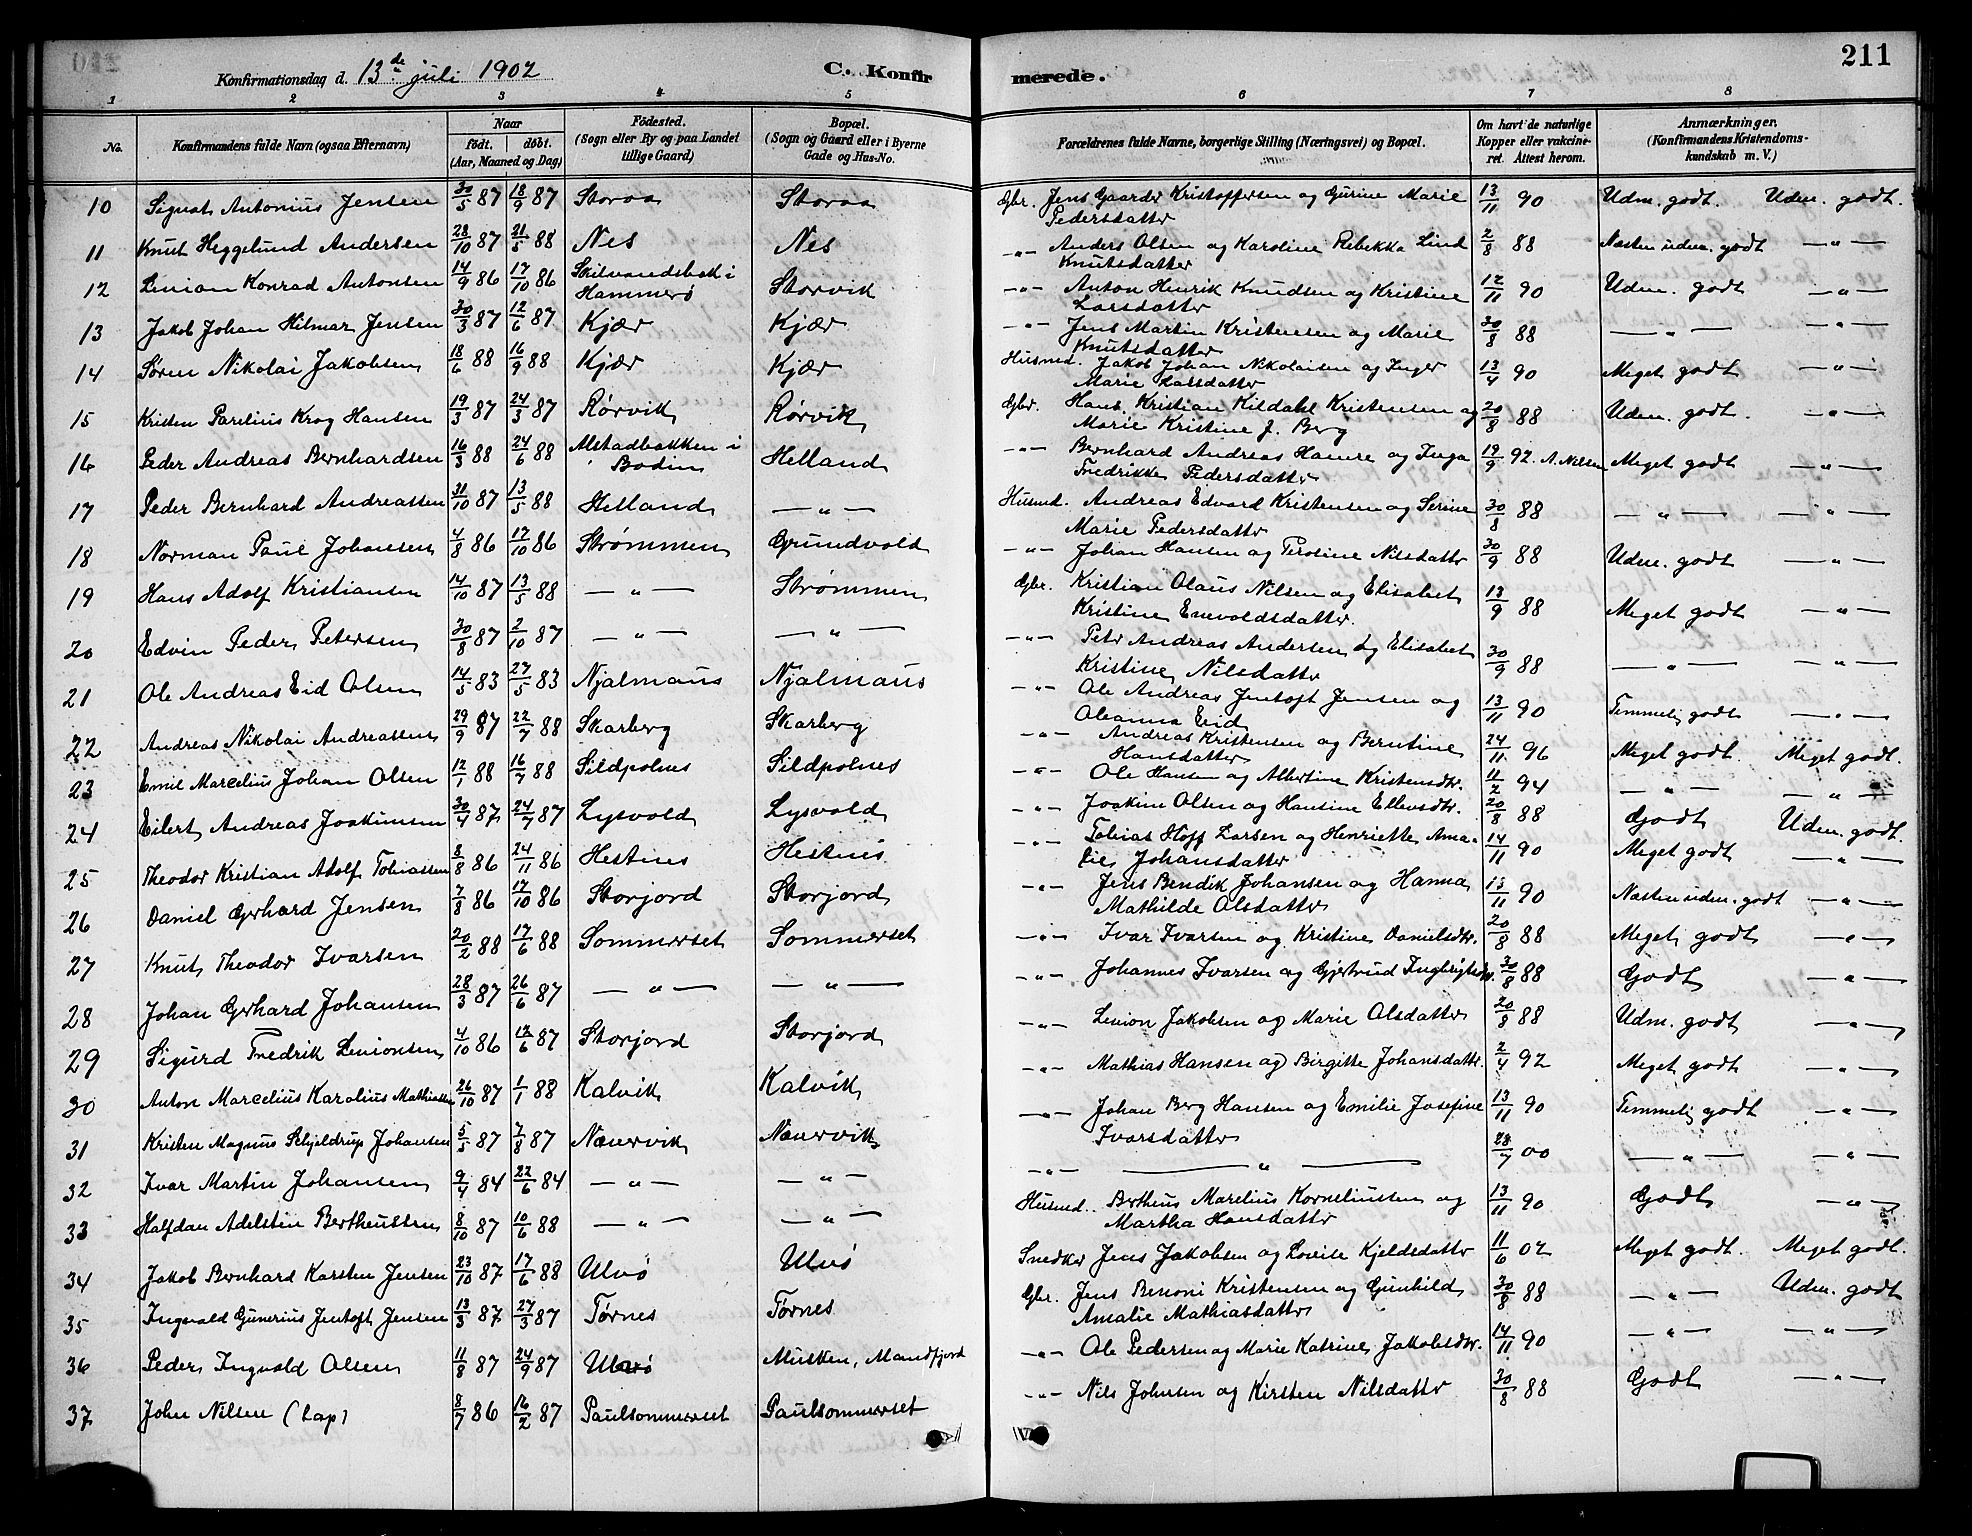 211
Konfirmationsdag d. 13de juli 1902
C. Konfirmerede.
1 2 3 4 5 6 7 8
No. | Konfirmandens fulde Navn (ogsaa Efternavn) | Naar født. døbt. (Aar, Maaned og Dag) | Födested. (Sogn eller By og paa Landet tillige Gaard) | Bopæl. (Sogn og Gaard eller i Byerne Gade og Hus-No. | Forældrenes fulde Navne, borgerlige Stilling (Næringsvei) og Bopæl. | Om havt de naturlige Kopper eller vakcineret. Attest herom. | Anmærkninger. (Konfirmandens Kristendomskundskab m. V.)
10 Signat Antonius Jensen 30/5 87 18/9 87 Storaa Storaa Gbr. Jens Gaarder Kristoffersen og Gurine Marie Pedersdatter 13/11 90 Udm. godt. Udm. godt.
11 Knut Heggelund Andersen 28/10 87 21/5 88 Nes Nes -"- Anders Olsen og Karoline Rebekka Lind Knutsdatter 2/8 88 Næsten udm. godt -"-
12 Linion Konrad Antonsen 14/9 86 17/10 86 Skilvandsbak i Hammerø Storvik -"- Anton Henrik Knudsen og Kristine Larsdatter 12/11 90 Udm. godt -"-
13 Jakob Johan Hilmar Jensen 30/3 87 12/6 87 Kjær Kjær -"- Jens Martin Kristensen og Marie Knutsdatter 30/8 88 -"- -"-
14 Søren Nikolai Jakobsen 18/6 88 16/9 88 Kjær Kjær Husmd. Jakob Johan Nikolaisen og Inger Marie Larsdatter 13/4 90 Meget godt -"-
15 Kristen Parelius Krog Hansen 19/3 87 24/3 87 Rørvik Rørvik Gbr. Hans Kristian Kildahl Kristensen og Marie Kristine J. Berg 20/8 88 Udm. godt. -"-
16 Peder Andreas Bernhardsen 16/3 88 24/6 88 Alstadbakken i Bodin Helland -"- Bernhard Andreas Hansen og Inga Fredrikke Pedersdatter 19/9 92. A. Nilsen Meget godt -"-
17 Peder Bernhard Andreassen 31/10 87 13/5 88 Helland -"- Husmd. Andreas Edvard Kristensen og Serine Marie Pedersdatter 30/8 88 -"- -"-
18 Norman Paul Johansen 4/8 86 17/10 86 Strømmen Grundvold -"- Johan Hansen og Peroline Nilsdatter 30/9 88 Udm. godt -"-
19 Hans Adolf Kristiansen 14/10 87 13/5 88 -"- Strømmen Gbr. Kristian Olaus Nilsen og Elisabet Kristine Enevoldsdatter. 13/9 88 Meget godt -"-
20 Edvin Peder Petersen 30/8 87 2/10 87 -"- -"- -"- Peter Andreas Andersen og Elisabet Kristine Nilsdatter 30/9 88 -"- -"-
21 Ole Andreas Eid Olsen 14/5 83 27/5 83 Njalmaus Njalmaus -"- Ole Andreas Jentoft Jensen og Oleanna Eid 13/11 90 Temmelig godt -"-
22 Andreas Nikolai Andreassen 29/9 87 22/7 88 Skarberg Skarberg -"- Andreas Kristensen og Berntine Hansdatter 24/11 96 Meget godt Meget godt.
23 Emil Marcelius Johan Olsen 12/1 88 16/7 88 Sildpolnes Sildpolnes -"- Ole Hansen og Albertine Kristensdtr. 11/2 94 -"- -"-
24 Eilert Andreas Joakimsen 30/4 87 24/7 87 Lysvold Lysvold -"- Joakim Olsen og Hansine Ellevsdtr. 20/8 88 Godt Udm. godt
25 Theodor Kristian Adolf Tobiassen 8/8 86 24/11 86 Hestnes Hestnes -"- Tobias Hoff Larsen og Henriette Amalie Johansdatter 14/11 90 Meget godt -"-
26 Daniel Gerhard Jensen 7/8 86 17/10 86 Storjord Storjord -"- Jens Bendik Johansen og Hanna Mathilde Olsdatter 13/11 90 Næsten udm. godt -"-
27 Knut Theodor Ivarsen 20/2 88 17/6 88 Sommerset Sommerset -"- Ivar Ivarsen og Kristine Danielsdtr. 20/8 88 Meget godt -"-
28 Johan Gerhard Johansen 28/3 87 26/6 87 -"- -"- -"- Johannes Ivarsen og Gjertrud 30/8 88 Godt -"-
29 Sigurd Fredrik Linionsen 4/10 86 12/6 87 Storjord Storjord -"- Linion Jakobsen og Marie Olsdatter 20/8 88 Udm. godt -"-
30 Anton Marcelius Karolius Mathiassen 26/10 87 1/1 88 Kalvik Kalvik -"- Mathias Hansen og Birgitte Johansdatter 2/4 92 Meget godt -"-
31 Kristen Magnus Schjeldrup Johansen 5/5 87 7/8 87 Nævervik Nævervik -"- Johan Berg Hansen og Emilie Josefine Ivarsdatter 13/11 90 Temmelig godt -"-
32 Ivar Martin Johansen 9/4 84 22/6 84 -"- -"- -"- -"- 28/7 00 -"- -"-
33 Halfdan Adelstin Bertheussen 8/10 87 10/6 88 -"- -"- Husmd. Bertheus Marelius Korneliussen og Martha Hansdatter 13/11 90 Godt -"-
34 Jakob Bernhard Karsten Jensen 23/10 87 17/6 88 Ulvø Ulvø Snedker Jens Jakobsen og Lovise Kjeldsdatter 11/6 02 Meget godt. Meget godt.
35 Ingvald Gunerius Jentoft Jensen 13/3 87 27/3 87 Tørnes Tørnes Gbr. Jens Benoni Kristensen og Gunhild Amalie Mathiasdatter 30/8 88 -"- Udm. godt
36 Peder Ingvald Olsen 11/8 87 24/9 87 Ulvø Musken, Mandfjord -"- Ole Pedersen og Marie Katrine Jakobsdtr. 14/11 90 -"- -"-
37 John Nilsen (Lap) 8/7 86 16/2 87 Paulsommerset Paulsommerset -"- Nils Johnsen og Kirsten Nilsdatter 30/8 88 Godt -"-